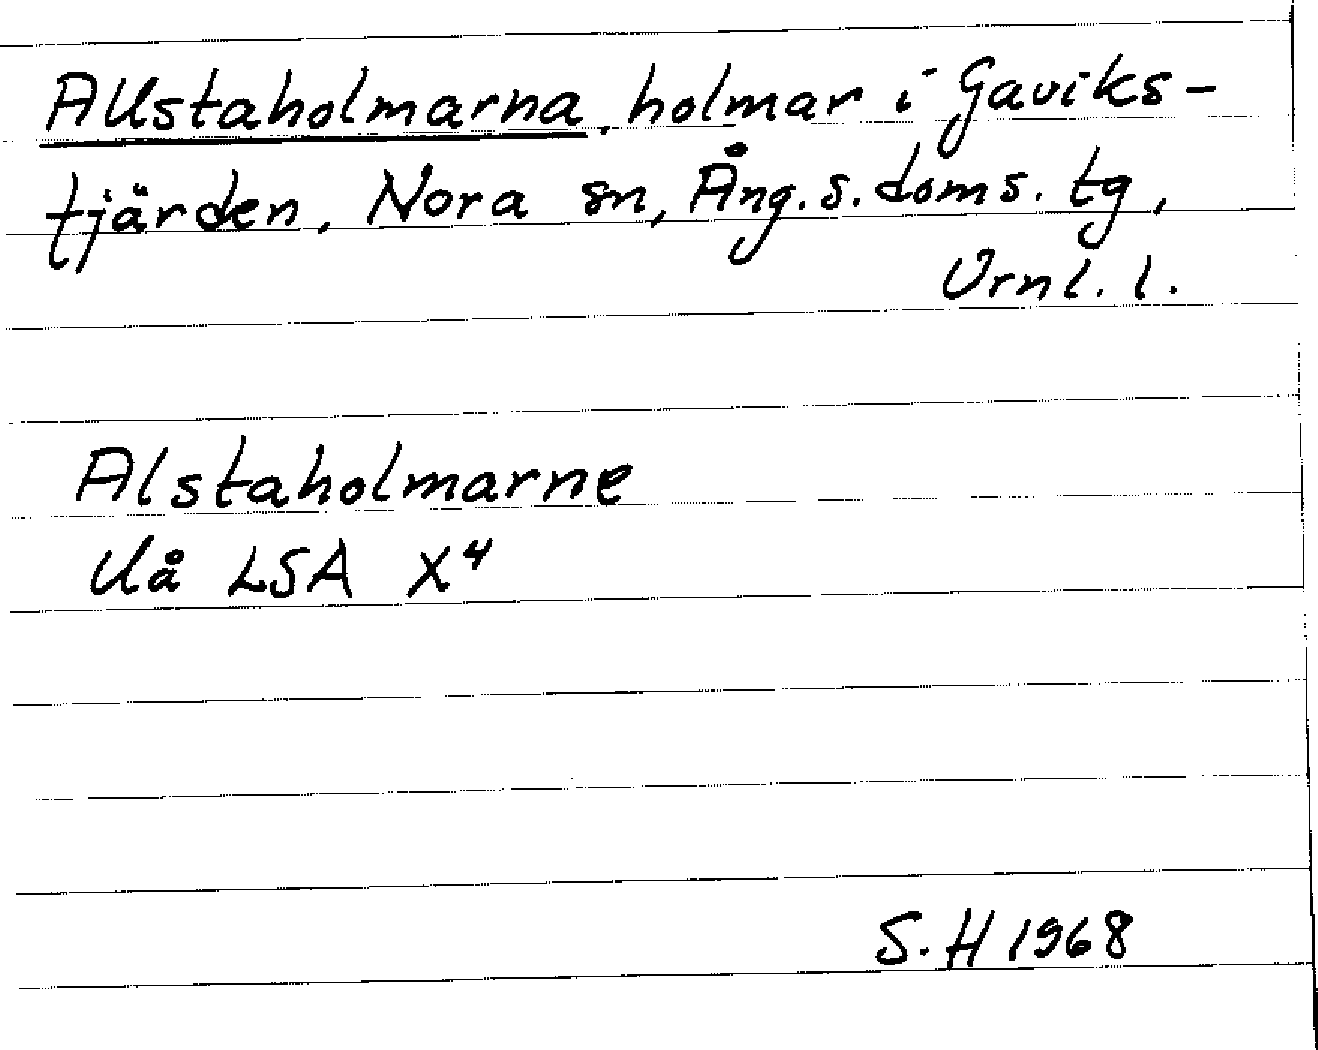 Allstaholmarna, holmar i Gaviks-
fjärden, Nora sn, Ång. s. doms. tg,
Vrnl. l.
Alstaholmarne
Uå LSA X4
S.H 1968